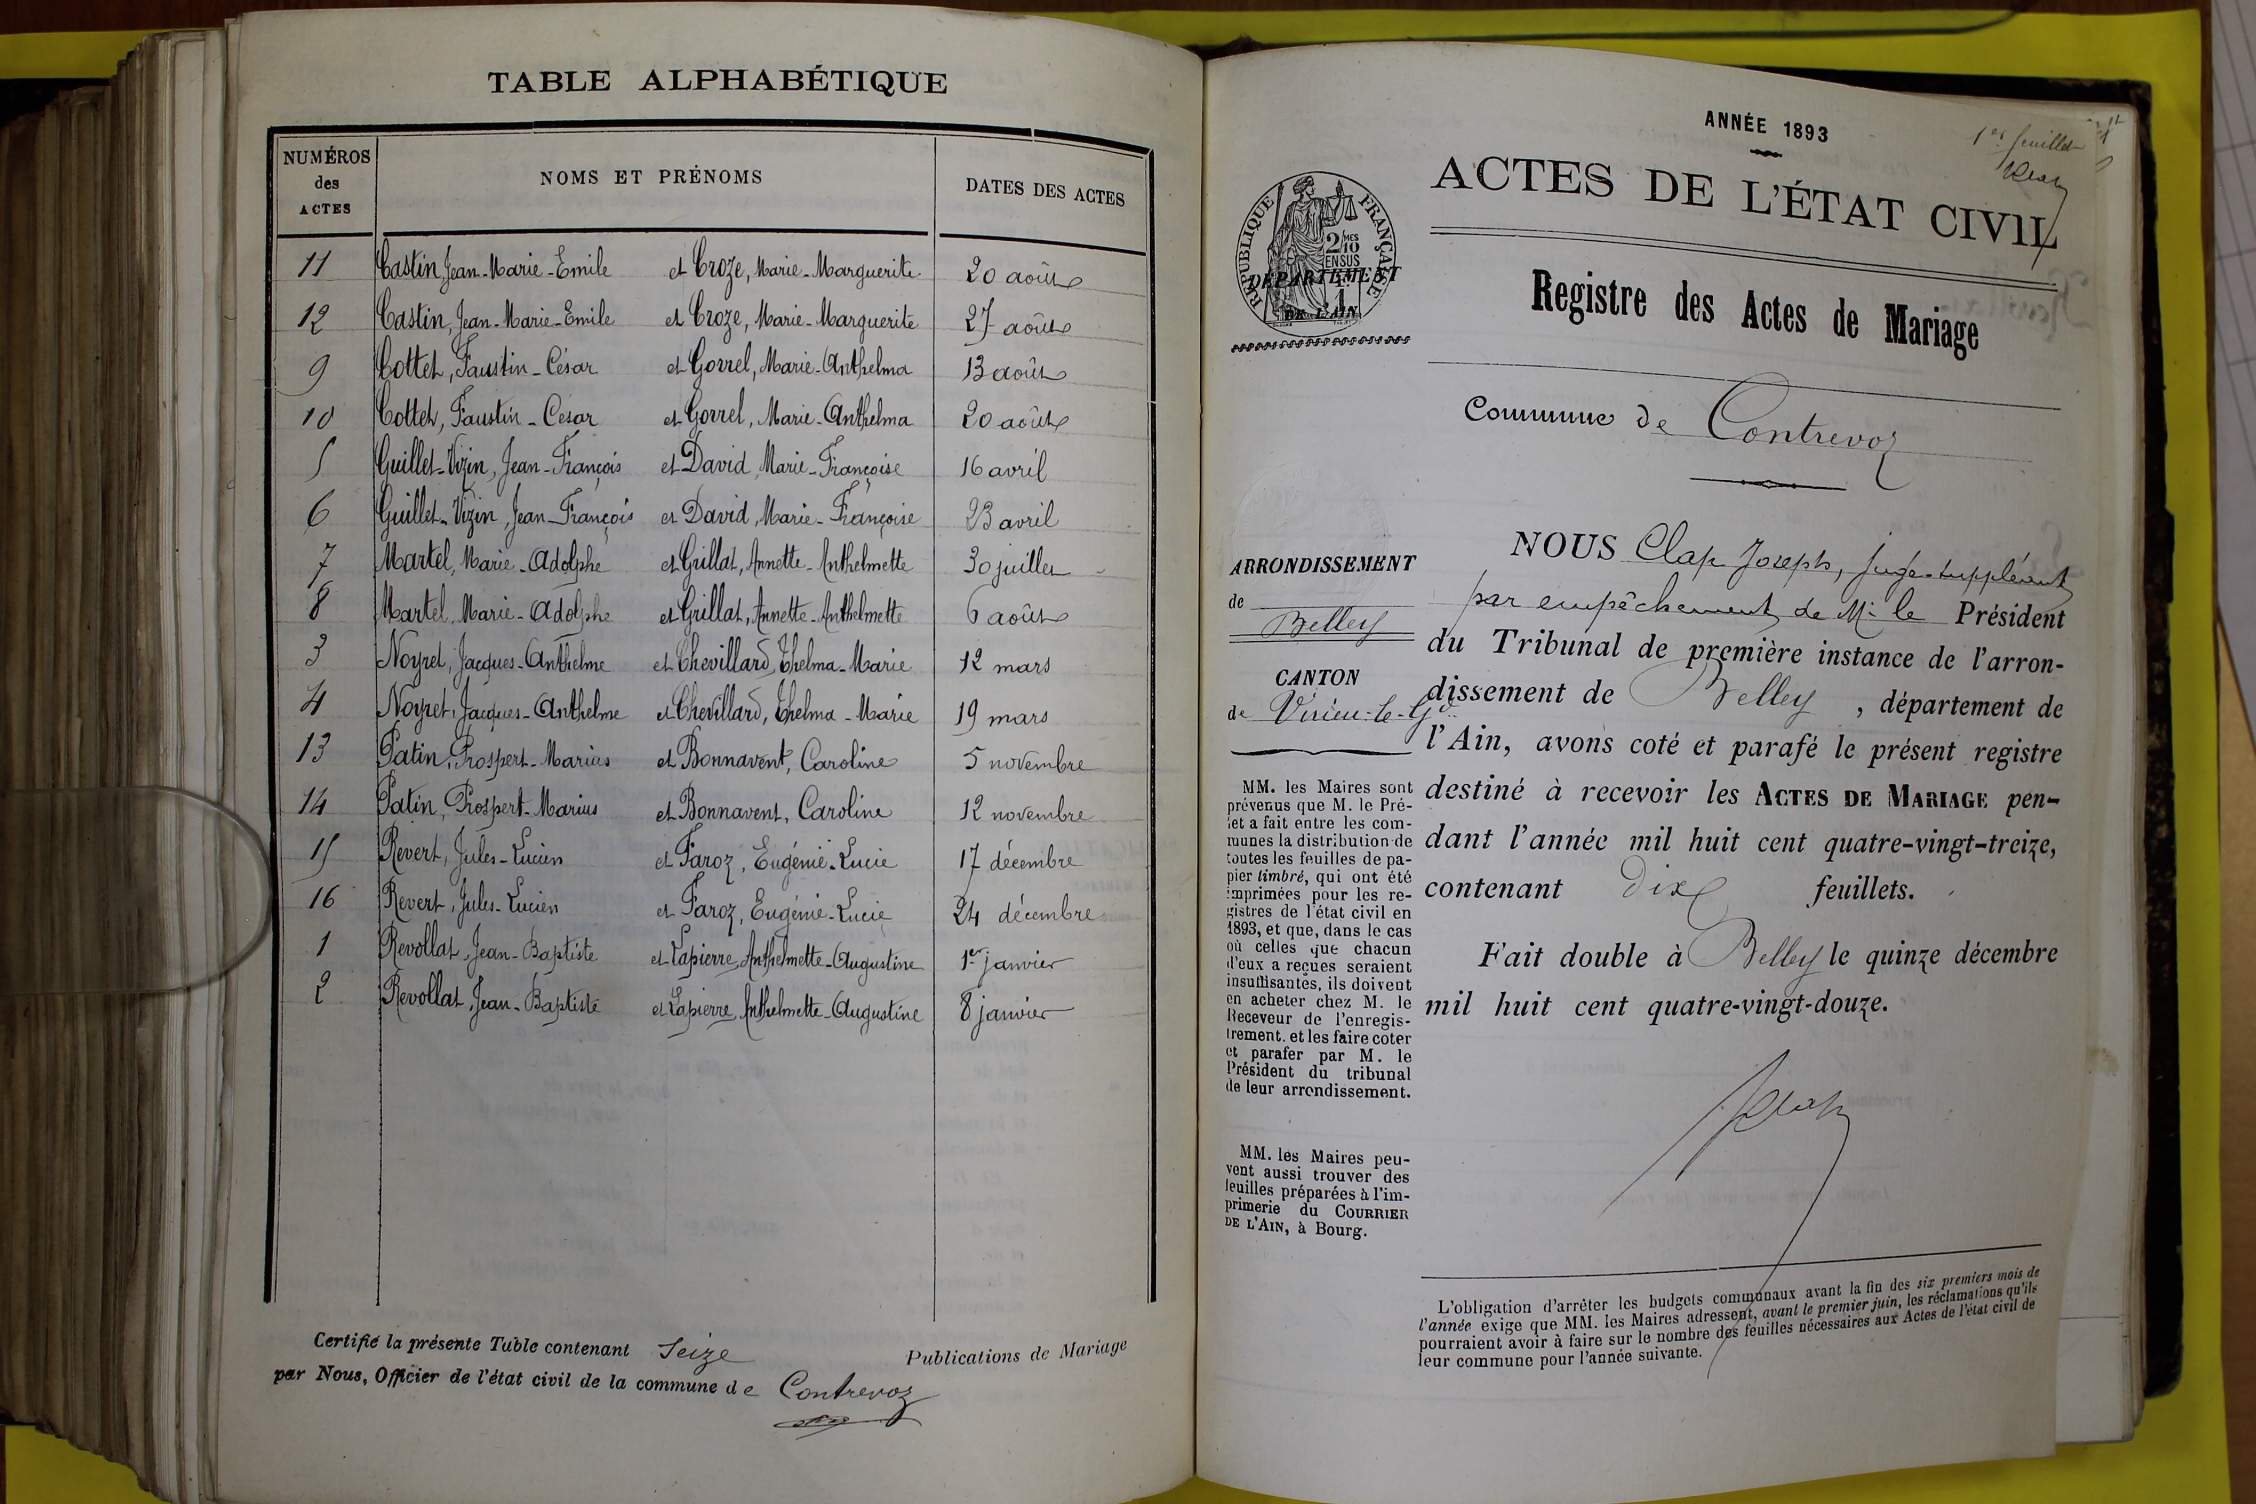 TABLE ALPHABÉTIQUE
NUMÉROS des ACTES NOMS ET PRÉNOMS DATES DES ACTES
11 Castin Jean-Marie-Emile et Croze, Marie-Marguerite 20 août
12 Castin, Jean-Marie-Emile et Croze, Marie-Marguerite 27 août
9 Cottet, Faustin-César et Gorrel, Marie-Anthelma 13 août
10 Cottet, Faustin-César et Gorrel, Marie-Anthelma 20 août
5 Guillet-Vizin, Jean-François et David Marie-Françoise 16 avril
6 Guillet-Vizin, Jean-François et David, Marie-Françoise 23 avril
7 Martel, Marie-Adolphe et Grillat, Annette-Anthelmette 30 juillet
8 Martel, Marie-Adolphe et Grillat, Annette-Anthelmette 6 août
3 Noyret, Jacques-Anthelme et Chevillard, Thelma-Marie 12 mars
4 Noyret, Jacques-Anthelme et Chevillard, Thelma-Marie 19 mars
13 Patin, Prospert-Marius et Bonnavent, Caroline 5 novembre
14 Patin, Prospert-Marius et Bonnavent, Caroline 12 novembre
15 Revert, Jules-Lucien et Faroz, Eugénie-Lucie 17 décembre
16 Revert, Jules-Lucien et Faroz, Eugénie-Lucie 24 décembre
1 Revollat, Jean-Baptiste et Lapierre, Anthelmette-Augustine 1er janvier
2 Revollat, Jean-Baptiste et Lapierre, Anthelmette-Augustine 8 janvier
Certifié la présente Table contenant Seize Publications de Mariage
par Nous, Officier de l'état civil de la commune de Contrevoz
ANNÉE 1893
1er feuillet
ACTES DE L'ÉTAT CIVIL
RÉPUBLIQUE FRANÇAISE
2/10MES
EN SUS
DÉPARTEMENT
DE L'AIN
Registre des Actes de Mariage
Commune de Contrevoz
ARRONDISSEMENT
de
Belley
CANTON
de Virieu-le-Gd
MM. les Maires sont
prévenus que M. le Pré-
fet a fait entre les com-
munes la distribution de
toutes les feuilles de pa-
pier timbré, qui ont été
imprimées pour les re-
gistres de l'état civil en
1893, et que, dans le cas
où celles que chacun
d'eux a reçues seraient
insuffisantes, ils doivent
en acheter chez M. le
Receveur de l'enregis-
trement. et les faire coter
et parafer par M. le
Président du tribunal
de leur arrondissement.
MM. les Maires peu-
vent aussi trouver des
feuilles préparées à l'im-
primerie du COURRIER
DE L'AIN, à Bourg.
NOUS Clap Joseph, juge-suppléant
par empêchement de Mr le Président
du Tribunal de première instance de l'arron-
dissement de Belley, département de
l'Ain, avons coté et parafé le présent registre
destiné à recevoir les ACTES DE MARIAGE pen-
dant l'année mil huit cent quatre-vingt-treize,
contenant dix feuillets.
Fait double à Belley le quinze décembre
mil huit cent quatre-vingt-douze.
L'obligation d'arrêter les budgets communaux avant la fin des six premiers mois de
l'année exige que MM. les Maires adressent, avant le premier juin, les réclamations qu'ils
pourraient avoir à faire sur le nombre des feuilles nécessaires aux Actes de l'état civil de
leur commune pour l'année suivante.